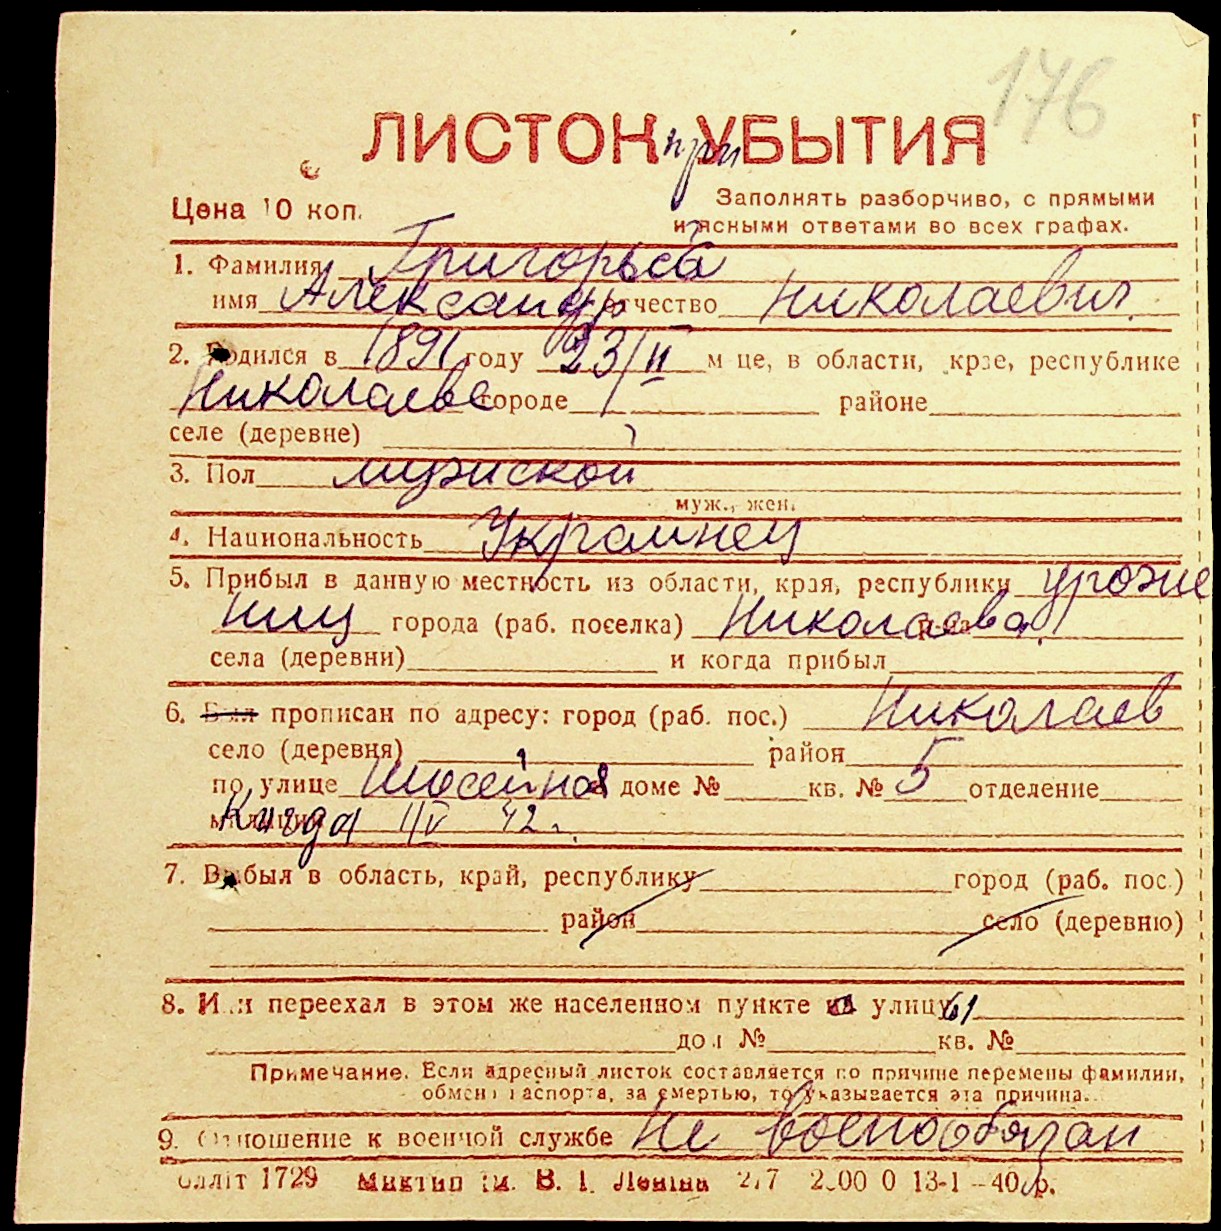 176
ЛИСТОК при УБЫТИЯ
Цена 10 коп.
Заполнять разборчиво, с прямыми
и ясными ответами во всех графах.
1. Фамилия Григорьев
имя Александр отчество Николаевич
2. Родился в 1891 году 23/II м-це, в области, крае, республике
Николаеве городе районе
селе (деревне)
3. Пол мужской
муж., жен.
4. Национальность Украинец
5. Прибыл в данную местность из области, края, республики уроже
ниц города (раб. поселка) Николаева
села (деревни) и когда прибыл
6. Был прописан по адресу: город (раб. пос.) Николаев
село (деревня) район
по улице Шосейная доме № кв. № 5 отделение
милиции Когда IV 42 г.
7. Выбыл в область, край, республику город (раб. пос.)
район село (деревню)
8. Или переехал в этом же населенном пункте на улицу 61
дом № кв. №
Примечание. Если адресный листок составляется по причине перемены фамилии,
обмена паспорта, за смертью, то указывается эта причина.
9. Отношение к военной службе Не военнообязан
1729 им. В. І. Леніна 13-1-40 р.